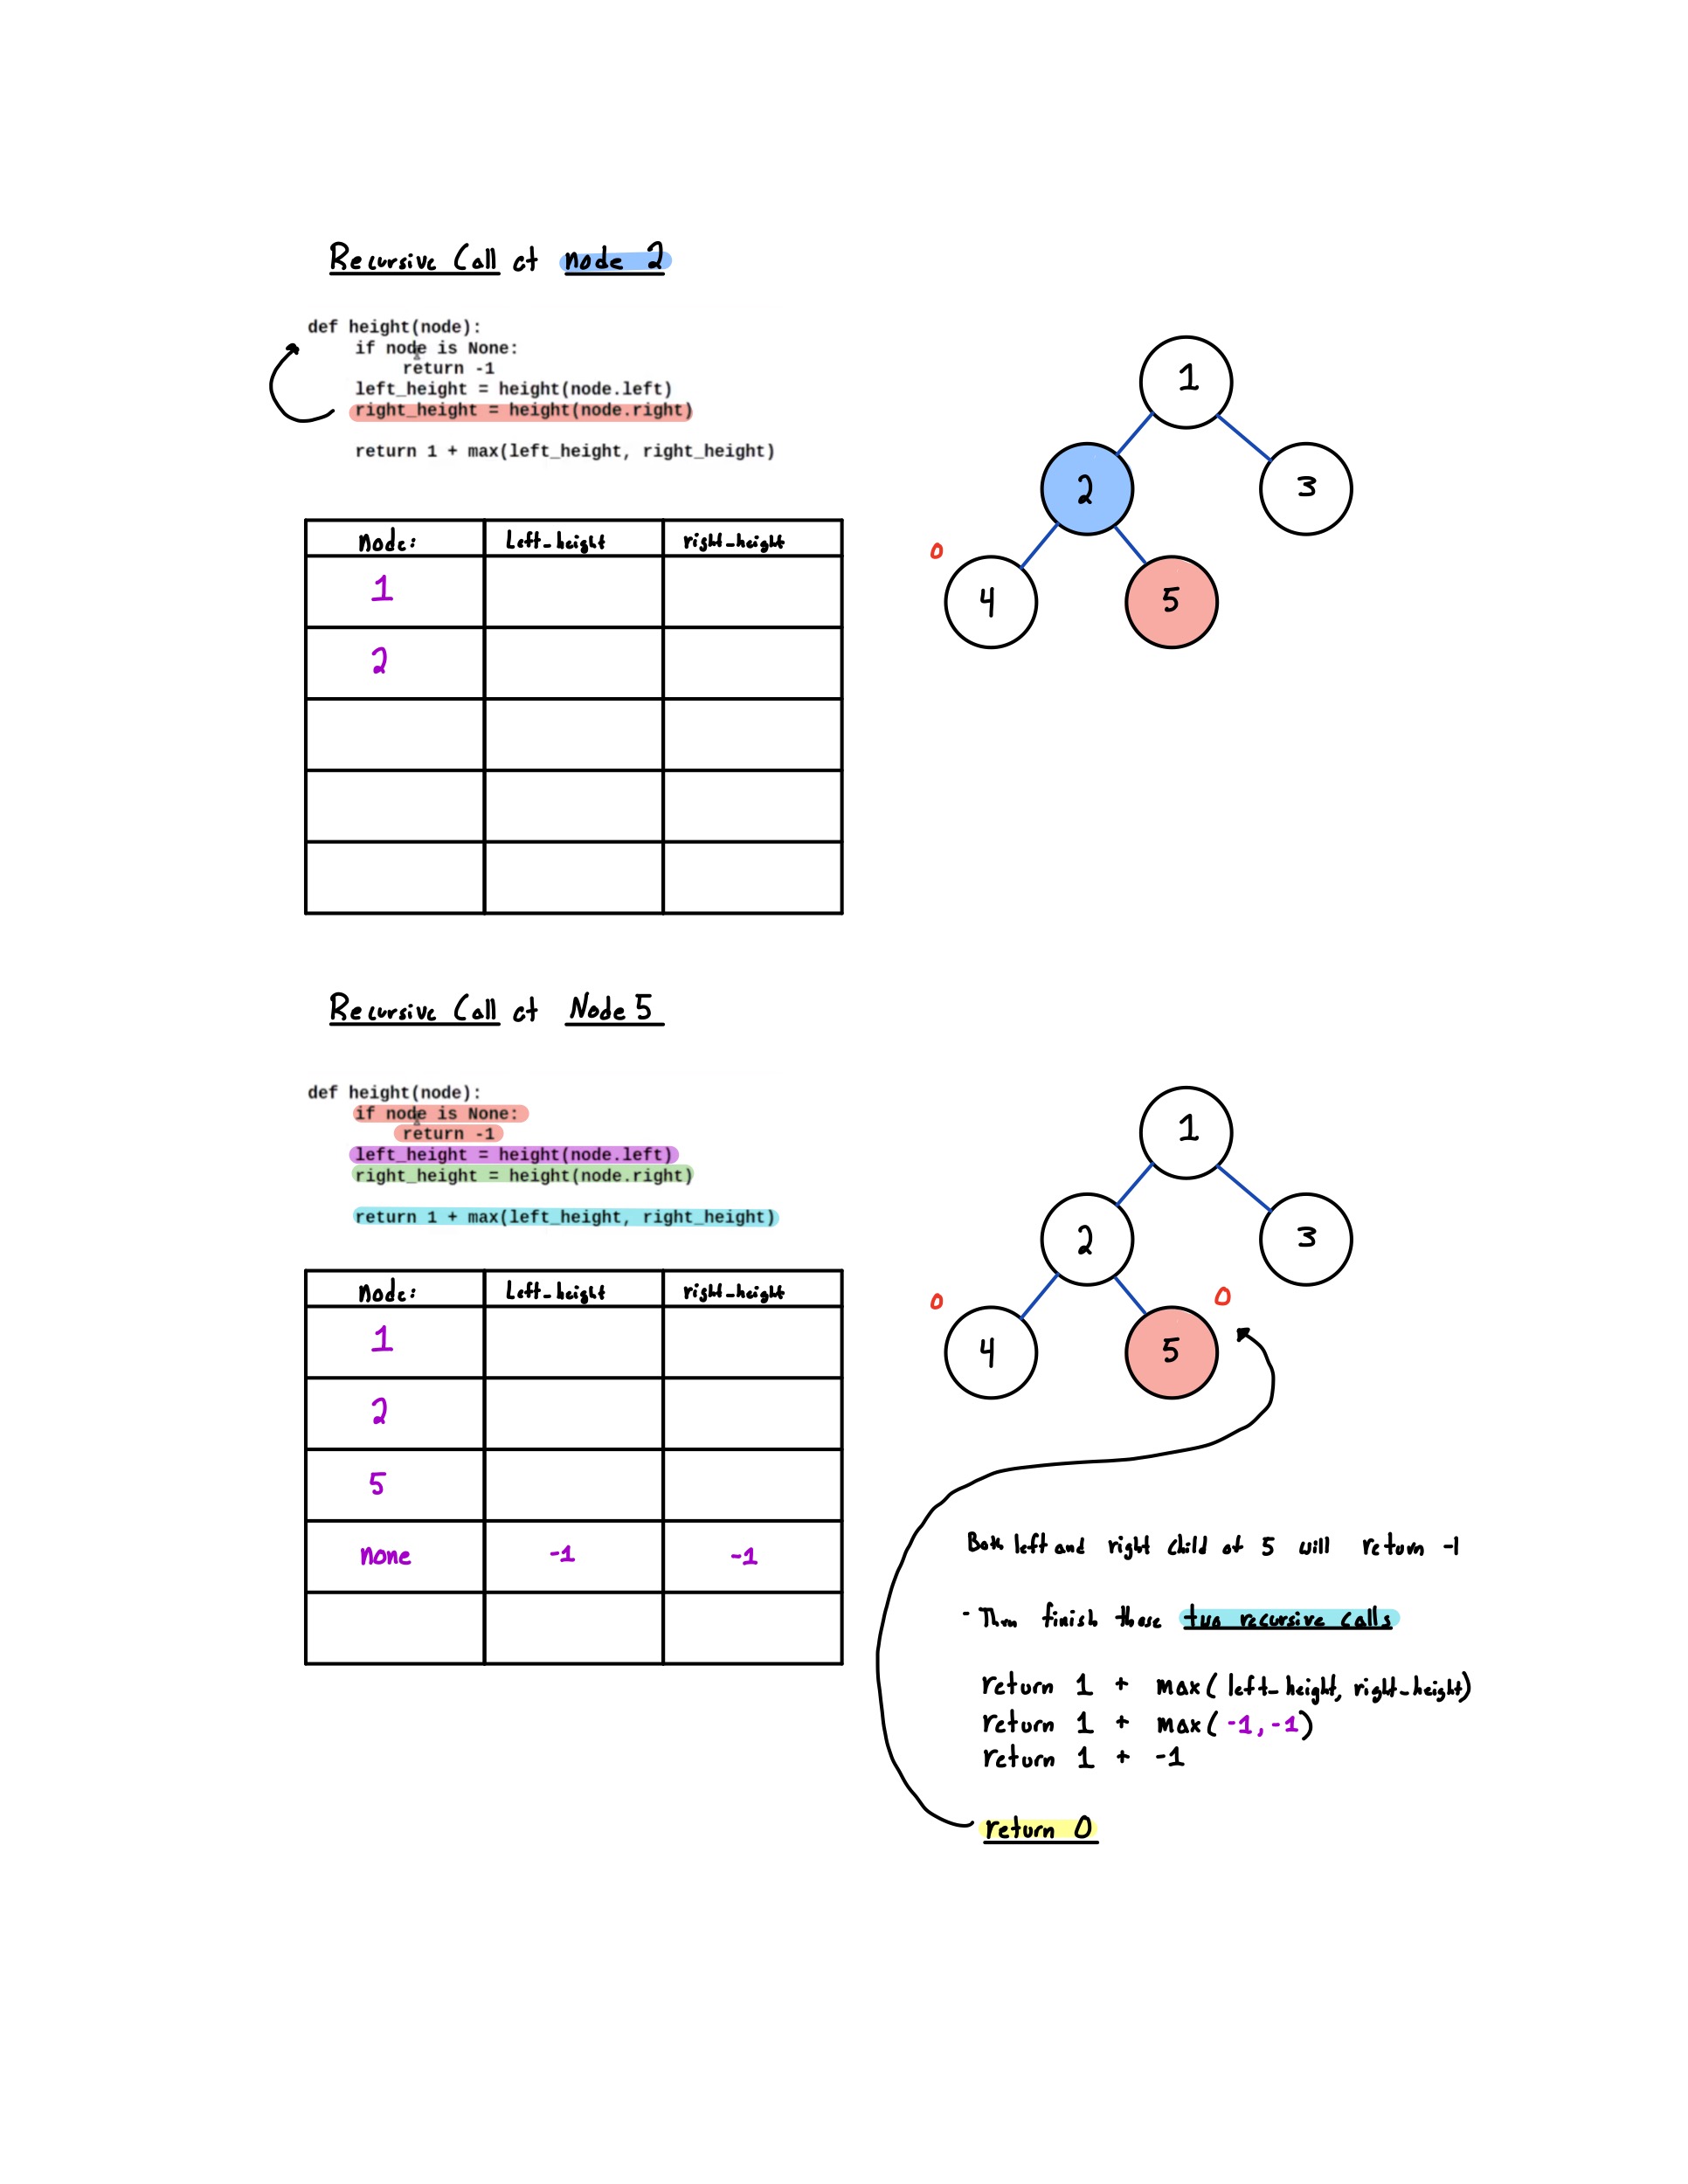 Recursive Call at node 2
def height(node):
if node is None:
return -1
left_height = height(node.left)
right_height = height(node.right)
return 1 + max(left_height, right_height)
Node: Left_height right_height
1
2
1
2 3
0
4 5
Recursive Call at Node 5
def height(node):
if node is None:
return -1
left_height = height(node.left)
right_height = height(node.right)
return 1 + max(left_height, right_height)
Node: Left_height right_height
1
2
5
none -1 -1
1
2 3
0 0
4 5
Both left and right child of 5 will return -1
- Then finish those two recursive calls
return 1 + max(left_height, right_height)
return 1 + max(-1, -1)
return 1 + -1
return 0